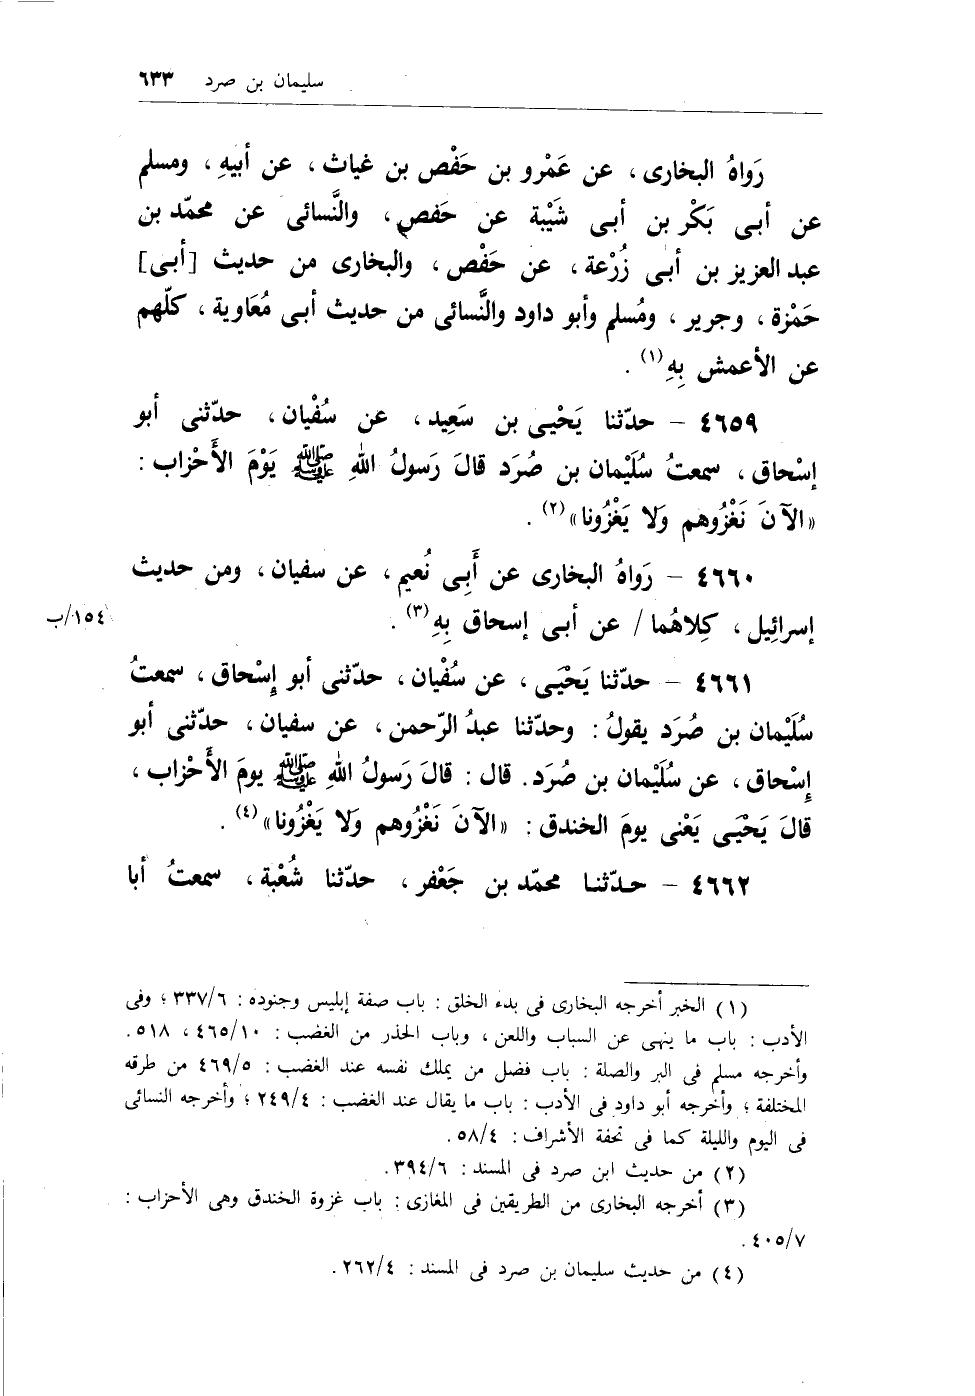 سليمان بن صرد ٦٣٣
رَواهُ البخارى ، عن عَمْرو بن حَفْص بن غياث ، عن أبيهِ ، ومسلم
عن أبى بَكْر بن أبى شَيْبة عن حَفص ، والنَّسائى عن محمّد بن
عبد العزيز بن أبى زُرْعة ، عن حَفْص ، والبخارى من حديث [أبى]
حَمْزة ، وجرير ، ومُسلم وأبو داود والنَّسائى من حديث أبى مُعَاوية ، كلّهم
عن الأعمش بِهِ(١) .
٤٦٥٩ – حدّثنا يَحْيـى بن سَعِيد ، عن سُفْيان ، حدّثنى أبو
إسْحاق ، سمعتُ سُلَيْمان بن صُرَد قالَ رَسولُ اللهِ ﷺ يَوْمَ الأَحْزاب :
«الآنَ نَغْزُوهم وَلا يَغْزُونا»(٢) .
٤٦٦٠ – رَواهُ البخارى عن أَبِى نُعيم ، عن سفيان ، ومن حديث
إسرائِيل ، كِلاهُما / عن أبى إسحاق بِهِ(٣) .
١٥٤/ب
٤٦٦١ – حدّثنا يَحْيَـى ، عن سُفْيان ، حدّثنى أبو إِسْحاق ، سمعتُ
سُلَيْمان بن صُرَد يقولُ : وحدّثنا عبدُ الرّحمن ، عن سفيان ، حدّثنى أبو
إِسْحاق ، عن سُلَيْمان بن صُرَد. قال : قالَ رَسولُ اللهِ ﷺ يومَ الأَحْزاب ،
قالَ يَحْيَـى يَعْنى يومَ الخندق : «الآنَ نَغْزُوهم وَلا يَغْزُونا»(٤) .
٤٦٦٢ – حدّثنا محمّد بن جَعْفر ، حدّثنا شُعْبة ، سمعتُ أبا
(١) الخبر أخرجه البخارى فى بدء الخلق : باب صفة إبليس وجنوده : ٣٣٧/٦ ؛ وفى
الأدب : باب ما ينهى عن السباب واللعن ، وباب الحذر من الغضب : ٤٦٥/١٠ ، ٥١٨ .
وأخرجه مسلم فى البر والصلة : باب فضل من يملك نفسه عند الغضب : ٤٦٩/٥ من طرقه
المختلفة ؛ وأخرجه أبو داود فى الأدب : باب ما يقال عند الغضب : ٢٤٩/٤ ؛ وأخرجه النسائى
فى اليوم والليلة كما فى تحفة الأشراف : ٥٨/٤ .
(٢) من حديث ابن صرد فى المسند : ٣٩٤/٦ .
(٣) أخرجه البخارى من الطريقين فى المغازى : باب غزوة الخندق وهى الأحزاب :
٤٠٥/٧ .
(٤) من حديث سليمان بن صرد فى المسند : ٢٦٢/٤ .